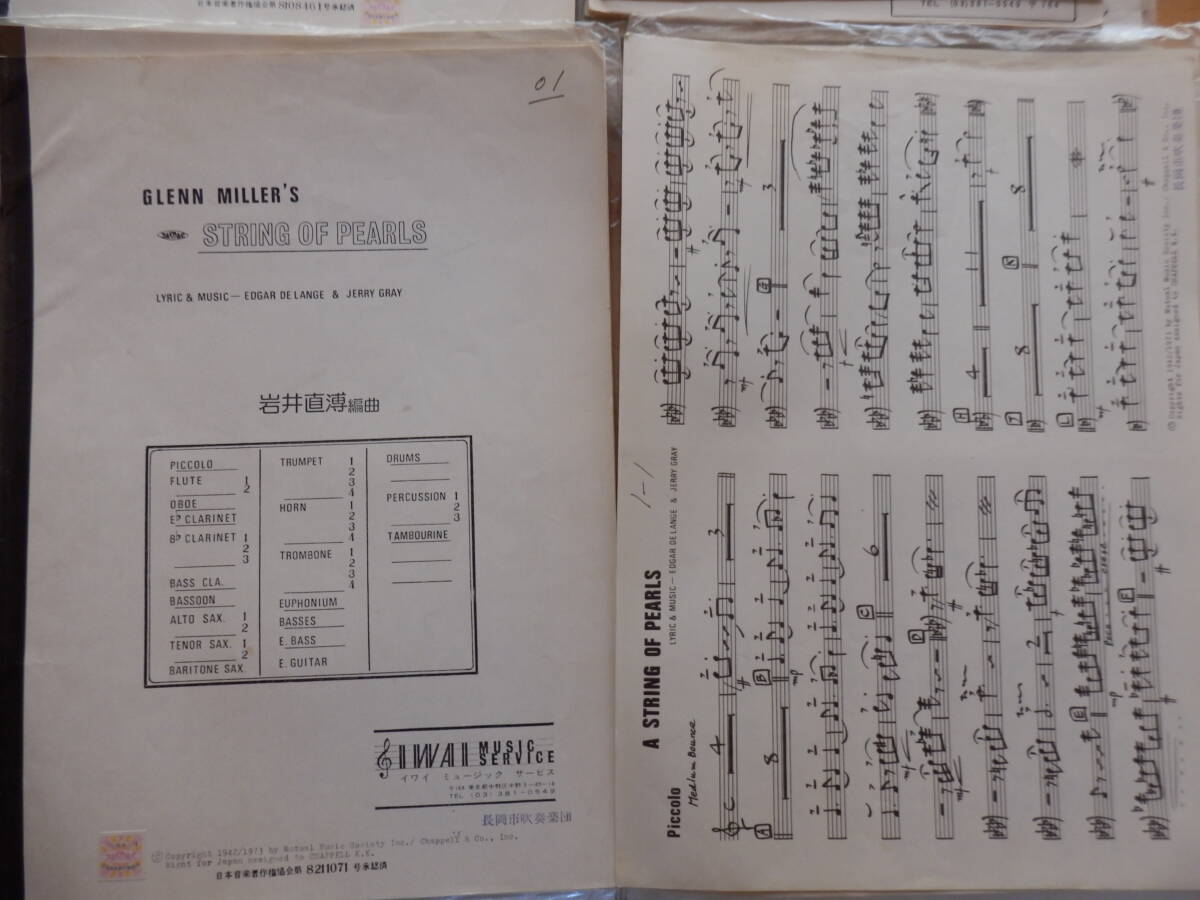 日本音楽著作権協会第 8108461号承認済
TEL (03) 381-0549 〒164
01
GLENN MILLER'S
STRING OF PEARLS
LYRIC & MUSIC — EDGAR DE LANGE & JERRY GRAY
岩井直溥編曲
PICCOLO
FLUTE 1
2
OBOE
E♭ CLARINET
B♭ CLARINET 1
2
3
BASS CLA.
BASSOON
ALTO SAX. 1
2
TENOR SAX. 1
2
BARITONE SAX.
TRUMPET 1
2
3
4
HORN 1
2
3
4
TROMBONE 1
2
3
4
EUPHONIUM
BASSES
E. BASS
E. GUITAR
DRUMS
PERCUSSION 1
2
3
TAMBOURINE
IWAI MUSIC SERVICE
イワイ ミュージック サービス
TEL (03) 381-0549
長岡市吹奏楽団
© Copyright 1942/1973 by Mutual Music Society Inc./ Chappell & Co., Inc.
Right for Japan assigned to CHAPPELL K.K.
日本音楽著作権協会第 8211071 号承認済
1-1
A STRING OF PEARLS
LYRIC & MUSIC — EDGAR DE LANGE & JERRY GRAY
Piccolo
Medium Bounce
4
3
A
8
B
mp
C
6
D
mp
2
E
F
mp
mp
G
3
H
4
11
J
8
K
8
L
mp
© Copyright 1942/1973 by Mutual Music Society Inc./ Chappell & Co., Inc.
Rights for Japan assigned to CHAPPELL K.K.
長岡市吹奏楽団